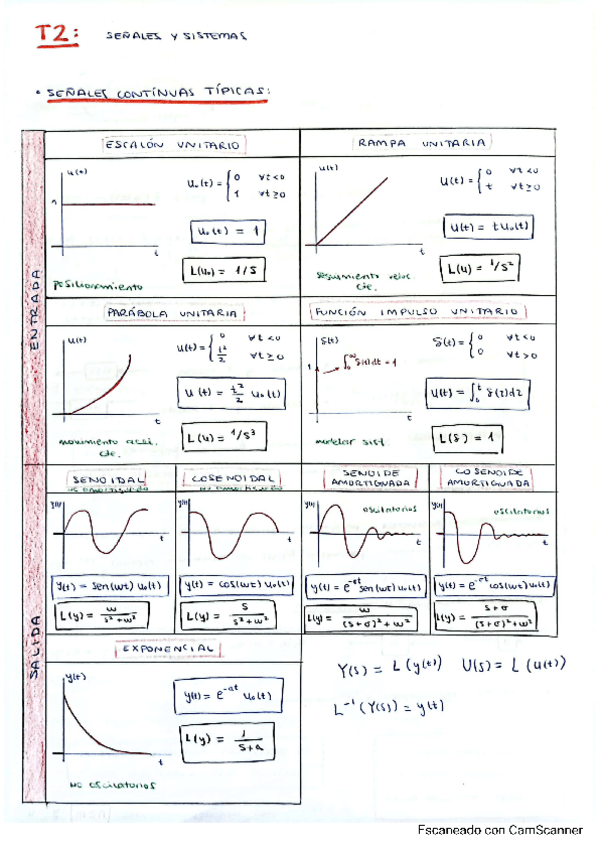 T2: SEÑALES Y SISTEMAS
• SEÑALES CONTÍNUAS TÍPICAS:
ENTRADA
ESCALÓN UNITARIO
1
t
u₀(t) = { 0 ∀t<0
1 ∀t≥0
u₀(t) = 1
L(u₀) = 1/S
posicionamiento
RAMPA UNITARIA
u(t)
t
u(t) = { 0 ∀t<0
t ∀t≥0
u(t) = t u₀(t)
L(u) = 1/s²
seguimiento veloc.
cte.
PARÁBOLA UNITARIA
u(t)
t
u(t) = { 0 ∀t<0
t²/2 ∀t≥0
u(t) = t²/2 u₀(t)
L(u) = 1/s³
movimiento acel.
cte.
FUNCIÓN IMPULSO UNITARIO
δ(t)
1
∫₀^∞ δ(t)dt = 1
t
δ(t) = { 0 ∀t<0
0 ∀t>0
L(δ) = 1
modelar sist
SALIDA
SENOIDAL
no amortiguado
y(t)
t
y(t) = sen(wt) u₀(t)
L(y) = w / s²+w²
COSENOIDAL
no amortiguado
y(t)
t
y(t) = cos(wt) u₀(t)
L(y) = s / s²+w²
SENOIDE
AMORTIGUADA
y(t)
oscilatorios
t
y(t) = e^-σt sen(wt) u₀(t)
L(y) = w / (s+σ)²+w²
COSENOIDE
AMORTIGUADA
y(t)
oscilatorios
t
y(t) = e^-σt cos(wt) u₀(t)
L(y) = s+σ / (s+σ)²+w²
EXPONENCIAL
y(t)
t
y(t) = e^-at u₀(t)
L(y) = 1 / s+a
no oscilatorios
Y(s) = L(y(t)) U(s) = L(u(t))
L⁻¹(Y(s)) = y(t)
Escaneado con CamScanner